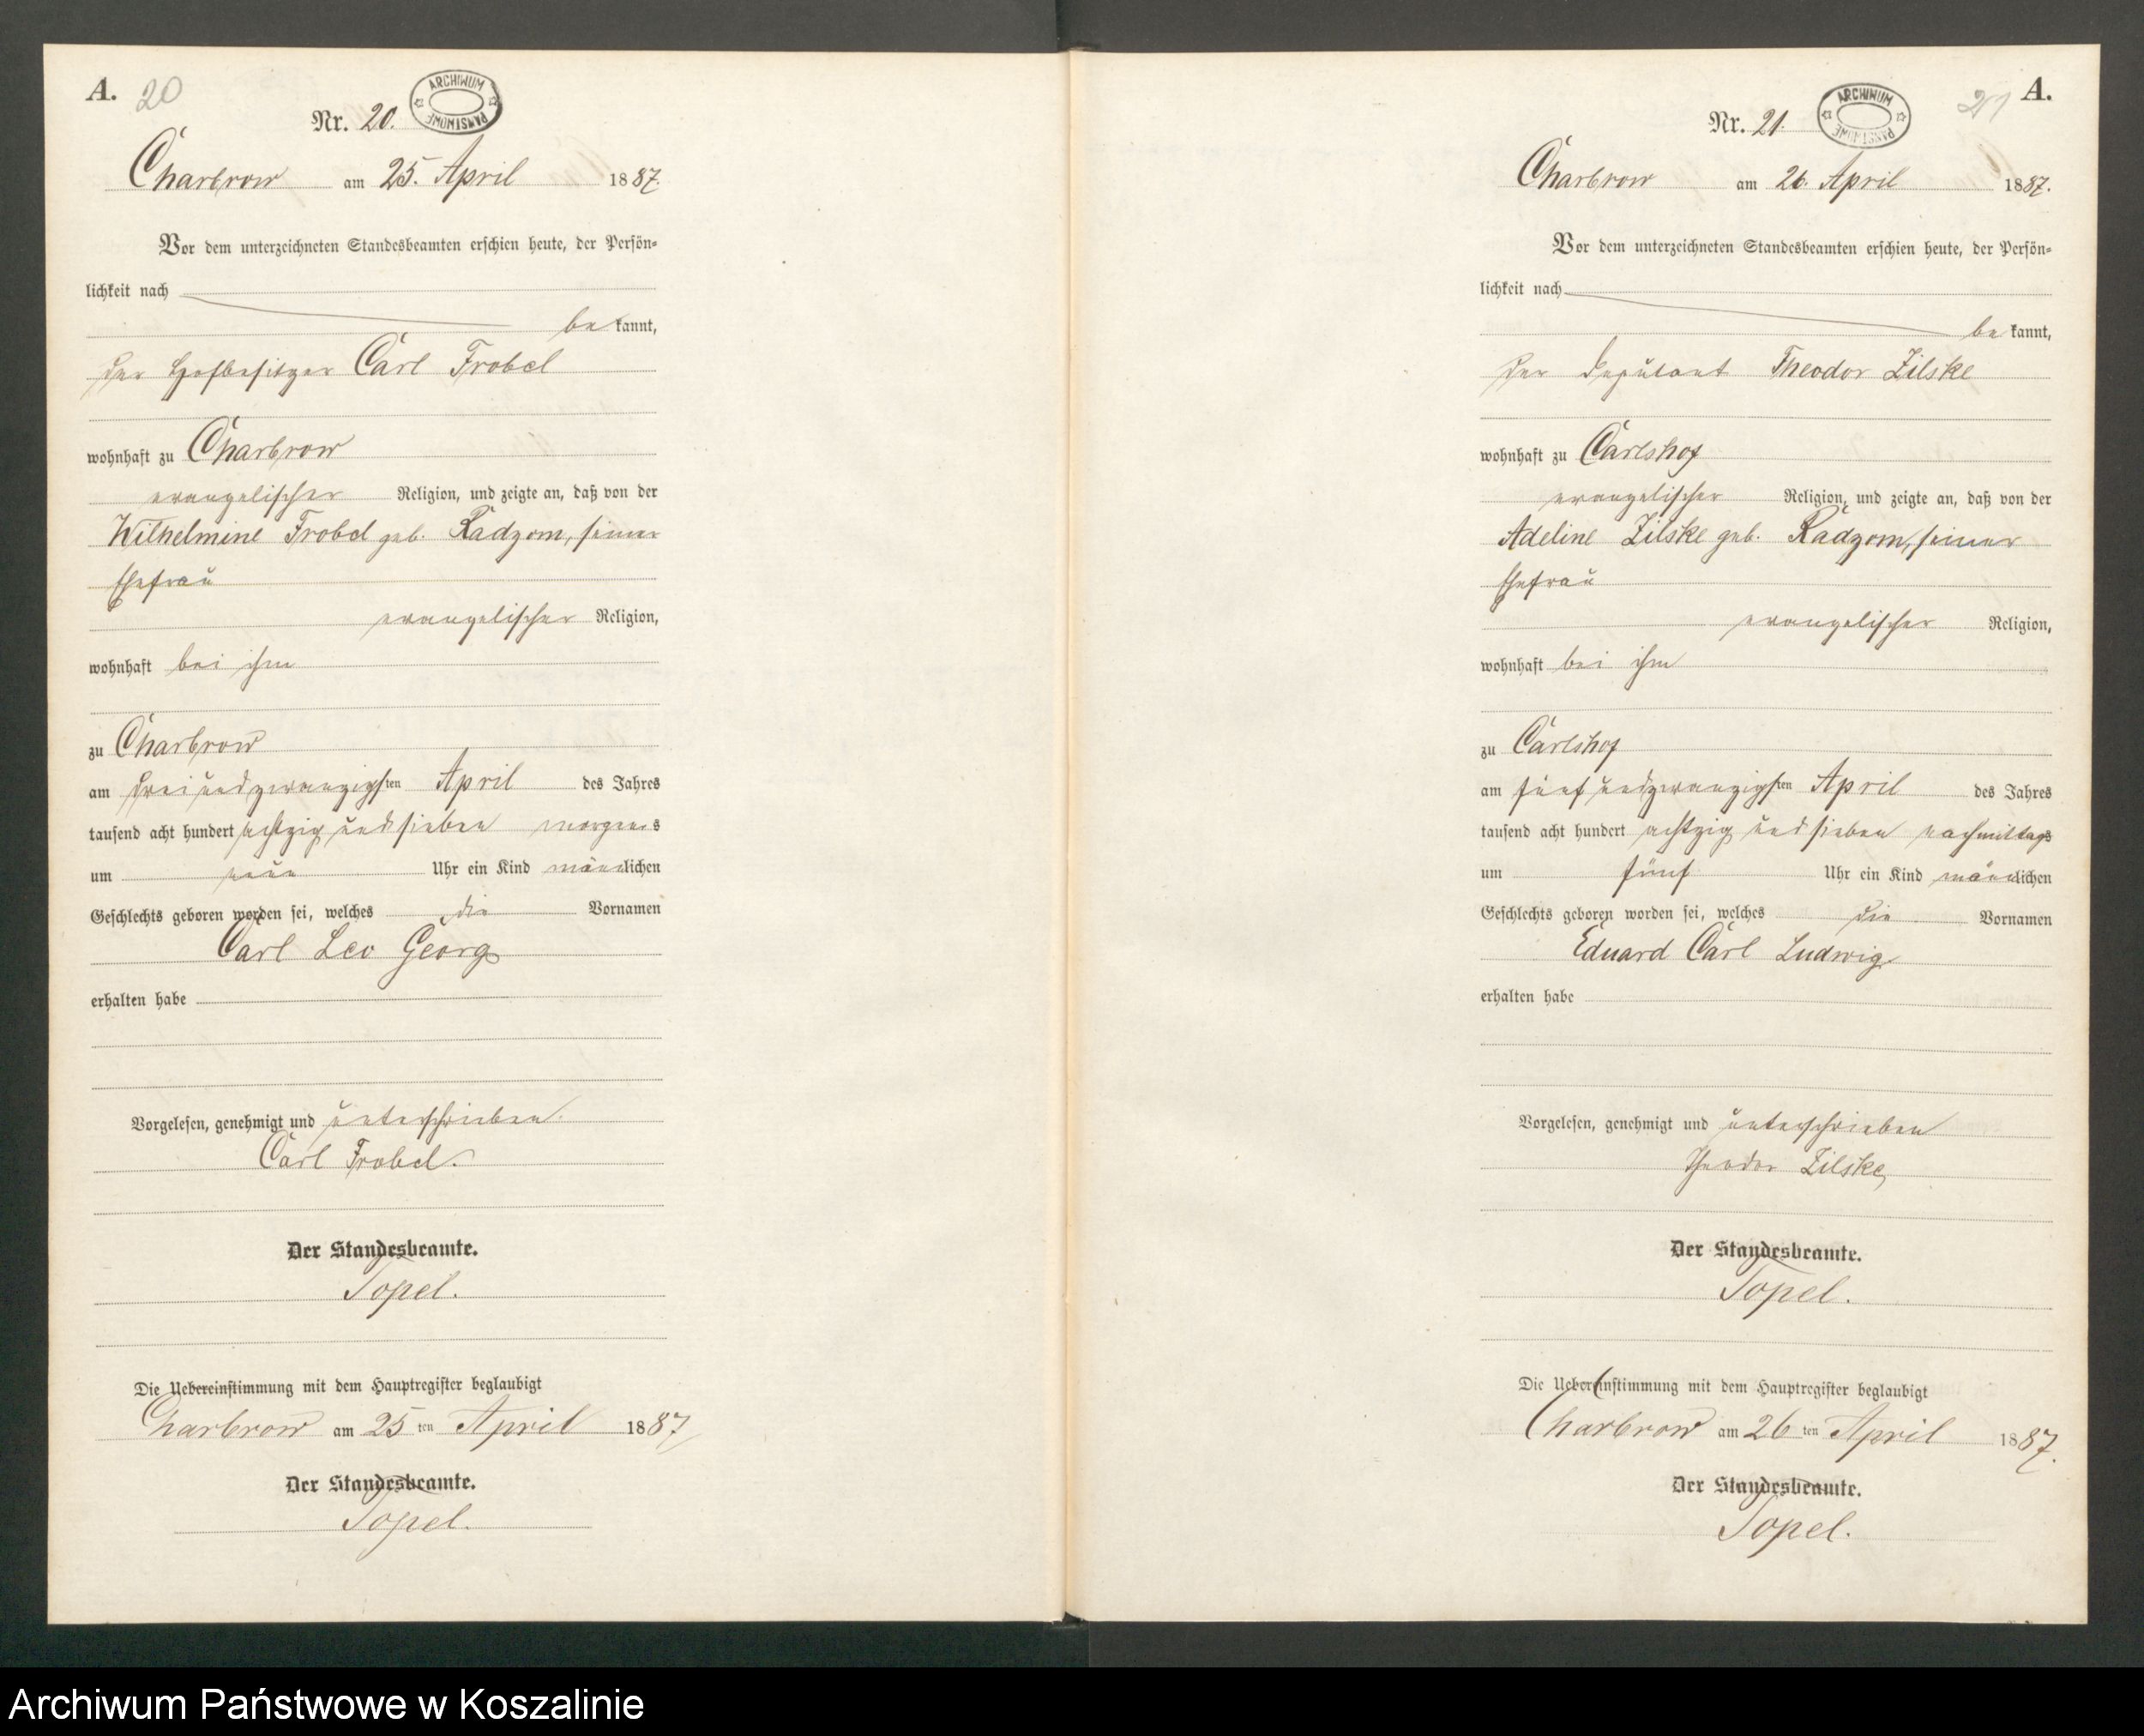 A. 20
ARCHIWUM PAŃSTWOWE
Nr. 20.
Charbrow am 25. April 1887.
Vor dem unterzeichneten Standesbeamten erschien heute, der Persön-
lichkeit nach
be kannt,
der Hofbesitzer Carl Frobel
wohnhaft zu Charbrow
evangelischer Religion, und zeigte an, daß von der
Wilhelmine Frobel geb. Radzom, seiner
Ehefrau
evangelischer Religion,
wohnhaft bei ihm
zu Charbrow
am drei und zwanzigsten April des Jahres
tausend acht hundert achtzig und sieben morgens
um neun Uhr ein Kind männlichen
Geschlechts geboren worden sei, welches die Vornamen
Carl Leo Georg
erhalten habe
Vorgelesen, genehmigt und unterschrieben.
Carl Frobel.
Der Standesbeamte.
Topel.
Die Uebereinstimmung mit dem Hauptregister beglaubigt
Charbrow am 25 ten April 1887
Der Standesbeamte.
Topel.
21 A.
ARCHIWUM PAŃSTWOWE
Nr. 21.
Charbrow am 26. April 1887.
Vor dem unterzeichneten Standesbeamten erschien heute, der Persön-
lichkeit nach
be kannt,
der Deputant Theodor Zilske
wohnhaft zu Carlshof
evangelischer Religion, und zeigte an, daß von der
Adeline Zilske geb. Radzom, seiner
Ehefrau
evangelischer Religion,
wohnhaft bei ihm
zu Carlshof
am fünf und zwanzigsten April des Jahres
tausend acht hundert achtzig und sieben nachmittags
um fünf Uhr ein Kind männlichen
Geschlechts geboren worden sei, welches die Vornamen
Eduard Carl Ludwig
erhalten habe
Vorgelesen, genehmigt und unterschrieben
Theodor Zilske
Der Standesbeamte.
Topel.
Die Uebereinstimmung mit dem Hauptregister beglaubigt
Charbrow am 26 ten April 1887.
Der Standesbeamte.
Topel.
Archiwum Państwowe w Koszalinie